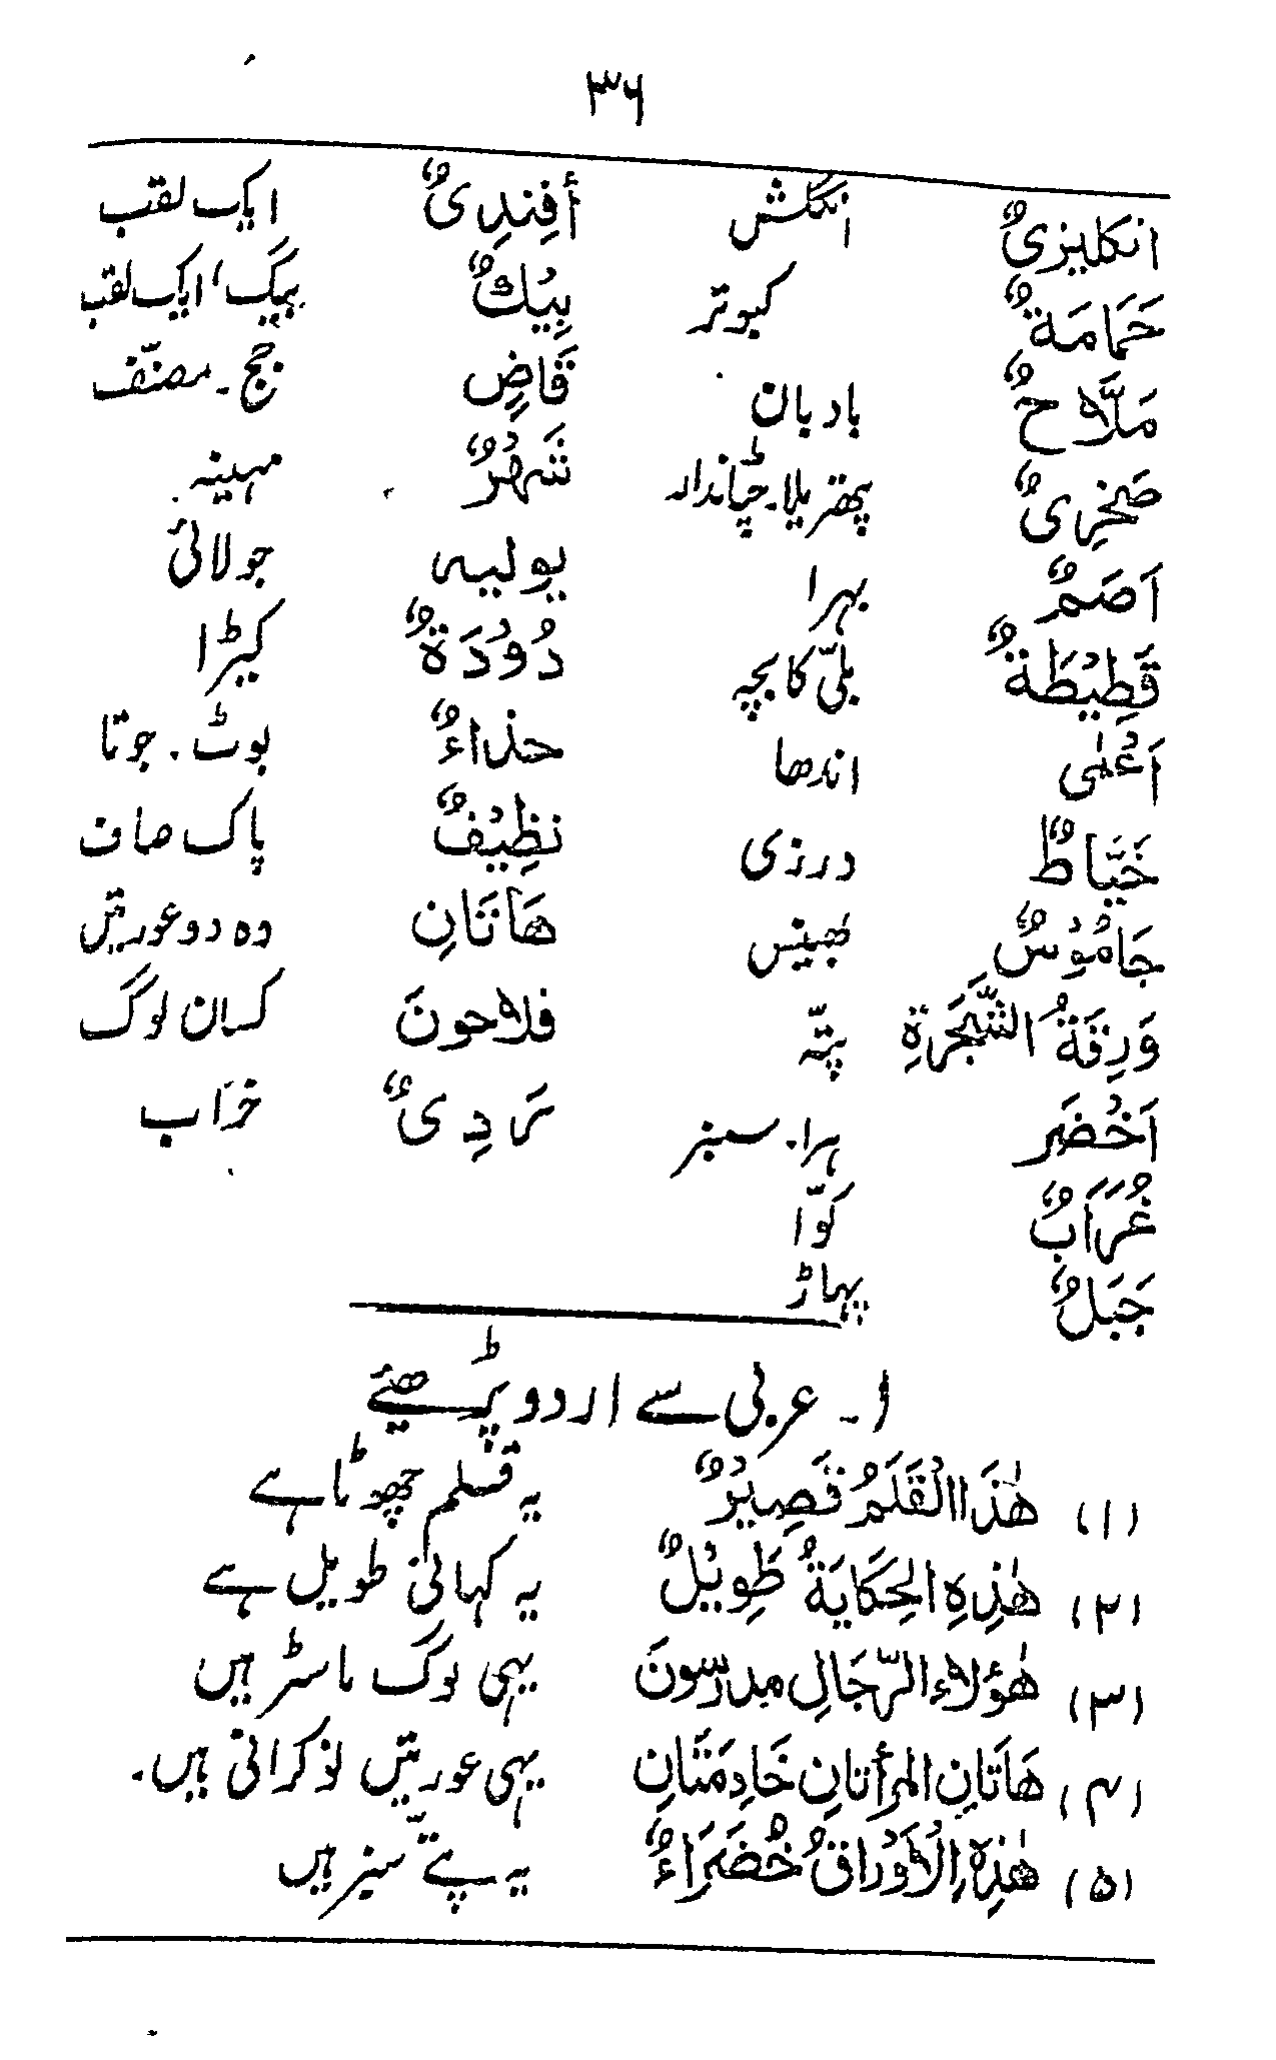 ۳۶
انکلیزیٌ انگلش أفِندِیٌ ایک لقب
حَمَامَةٌ کبوتر بِيْكٌ بیگ، ایک لقب
مَلَّاحٌ بادبان قَاضٍ جج۔ مصنّف
صَخْرِیٌ پتھریلا۔ چٹاندار شَهْرٌ مہینہ
اَصَمٌ بہرا یولیہ جولائی
قَطِيْطَةٌ بلّی کا بچہ دُوْدَةٌ کیڑا
اَعْمٰی اندھا حذاءٌ بوٹ۔ جوتا
خَيَّاطٌ درزی نظِيْفٌ پاک صاف
جَامُوْسٌ بھینس هَاتَانِ وہ دو عورتیں
وَرِقَةُ الشَّجَرَةِ پتّہ فلاحونَ کسان لوگ
اَخْضَر ہرا۔ سبز رَدِیٌ خراب
غُرَابٌ کوّا
جَبَلٌ پہاڑ
۱۔ عربی سے اردو پڑھئے
(۱) هٰذَا الْقَلَمُ قَصِيْرٌ یہ قلم چھوٹا ہے
(۲) هٰذِهِ الحِكَايَةُ طَوِيْلٌ یہ کہانی طویل ہے
(۳) هٰؤلاءِ الرّجَالِ مدرسونَ یہی لوگ ماسٹر ہیں
(۴) هَاتَانِ المرأتانِ خَادِمَتَانِ یہی عورتیں نوکرانی ہیں۔
(۵) هٰذِهِ الْأَوْرَاقُ خُضَرَاءٌ یہ پتّے سبز ہیں